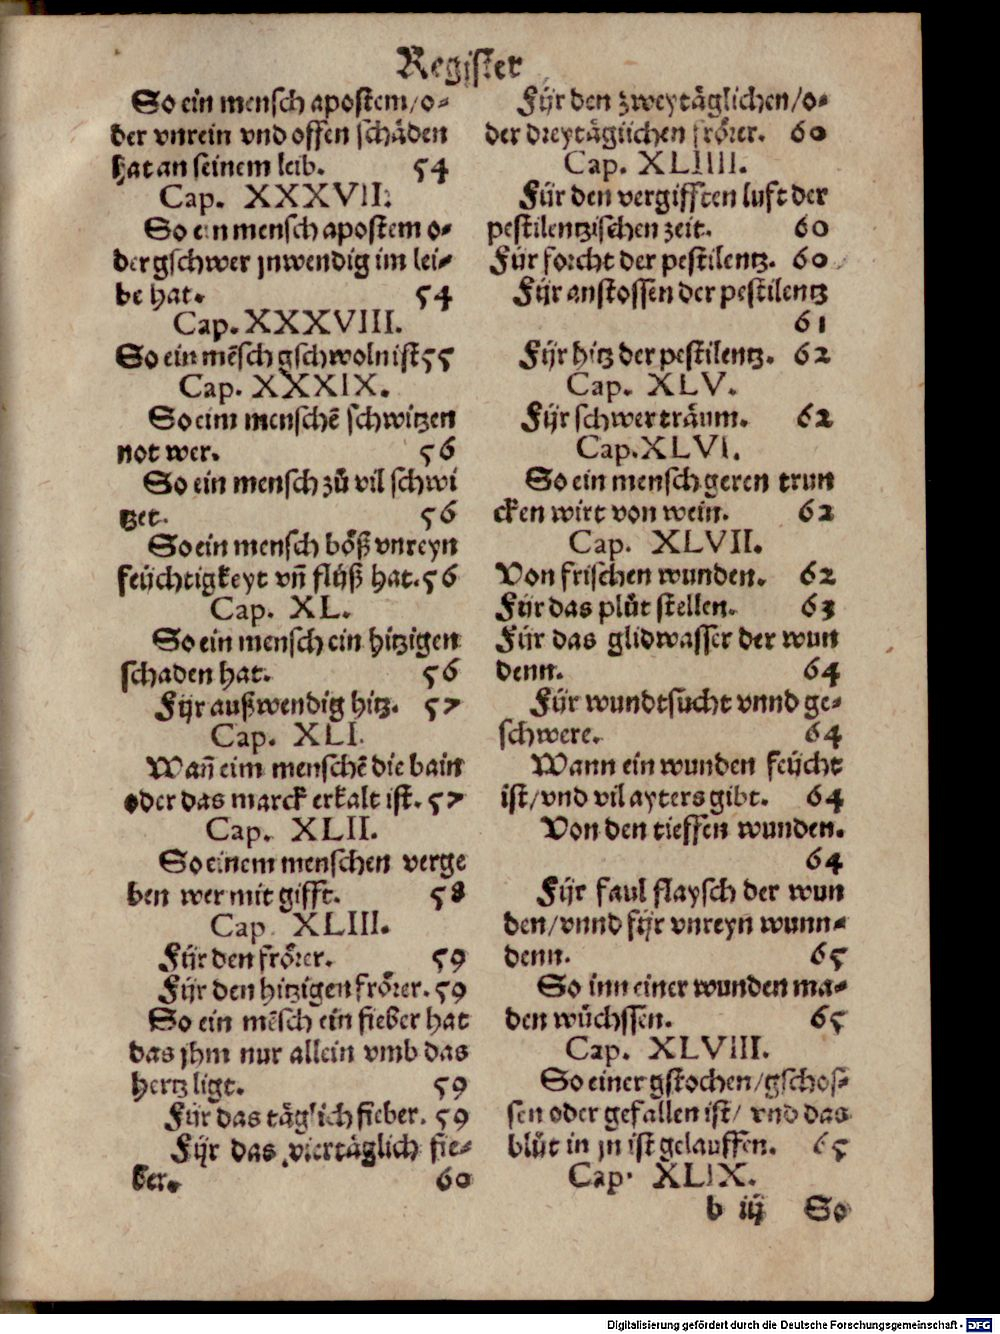 Register
So ein mensch apostem/o-
der vnrein vnd offen schäden
hat an seinem leib. 54
Cap. XXXVII.
So ein mensch apostem o-
der gschwer jnwendig im lei-
be hat. 54
Cap. XXXVIII.
So ein mẽsch gschwoln ist 55
Cap. XXXIX.
So eim menschẽ schwitzen
not wer. 56
So ein mensch zů vil schwi
tzet. 56
So ein mensch böß vnreyn
feüchtigkeyt vñ flüß hat. 56
Cap. XL.
So ein mensch ein hitzigen
schaden hat. 56
Für außwendig hitz. 57
Cap. XLI.
Wañ eim menschẽ die bain
oder das marck erkalt ist. 57
Cap. XLII.
So einem menschen verge
ben wer mit gifft. 58
Cap. XLIII.
Für den frörer. 59
Für den hitzigen frörer. 59
So ein mẽsch ein fieber hat
das jhm nur allein vmb das
hertz ligt. 59
Für das täglich fieber. 59
Für das viertäglich fie-
ber. 60
Für den zweytäglichen/o-
der dreytäglichen frörer. 60
Cap. XLIIII.
Für den vergifften luft der
pestilentzischen zeit. 60
Für forcht der pestilentz. 60
Für anstossen der pestilentz
61
Für hitz der pestilentz. 62
Cap. XLV.
Für schwer träum. 62
Cap. XLVI.
So ein mensch geren trun
cken wirt von wein. 62
Cap. XLVII.
Von frischen wunden. 62
Für das plůt stellen. 63
Für das glidwasser der wun
denn. 64
Für wundtsucht vnnd ge-
schwere. 64
Wann ein wunden feücht
ist/vnd vil ayters gibt. 64
Von den tieffen wunden.
64
Für faul flaysch der wun
den/vnnd für vnreyn wunn-
denn. 65
So inn einer wunden ma-
den wüchssen. 65
Cap. XLVIII.
So einer gstochen/gschos-
sen oder gefallen ist/ vnd das
blůt in jn ist gelauffen. 65
Cap. XLIX.
b iij So
Digitalisierung gefördert durch die Deutsche Forschungsgemeinschaft - DFG